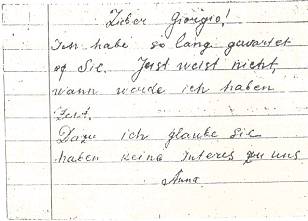 Lieber Giorgio!
Ich habe so lang gewartet
of Sie. Jast weist nicht,
wann werde ich haben
Zeit.
Dazu ich glaube Sie
haben keine Interes zu uns
Anna